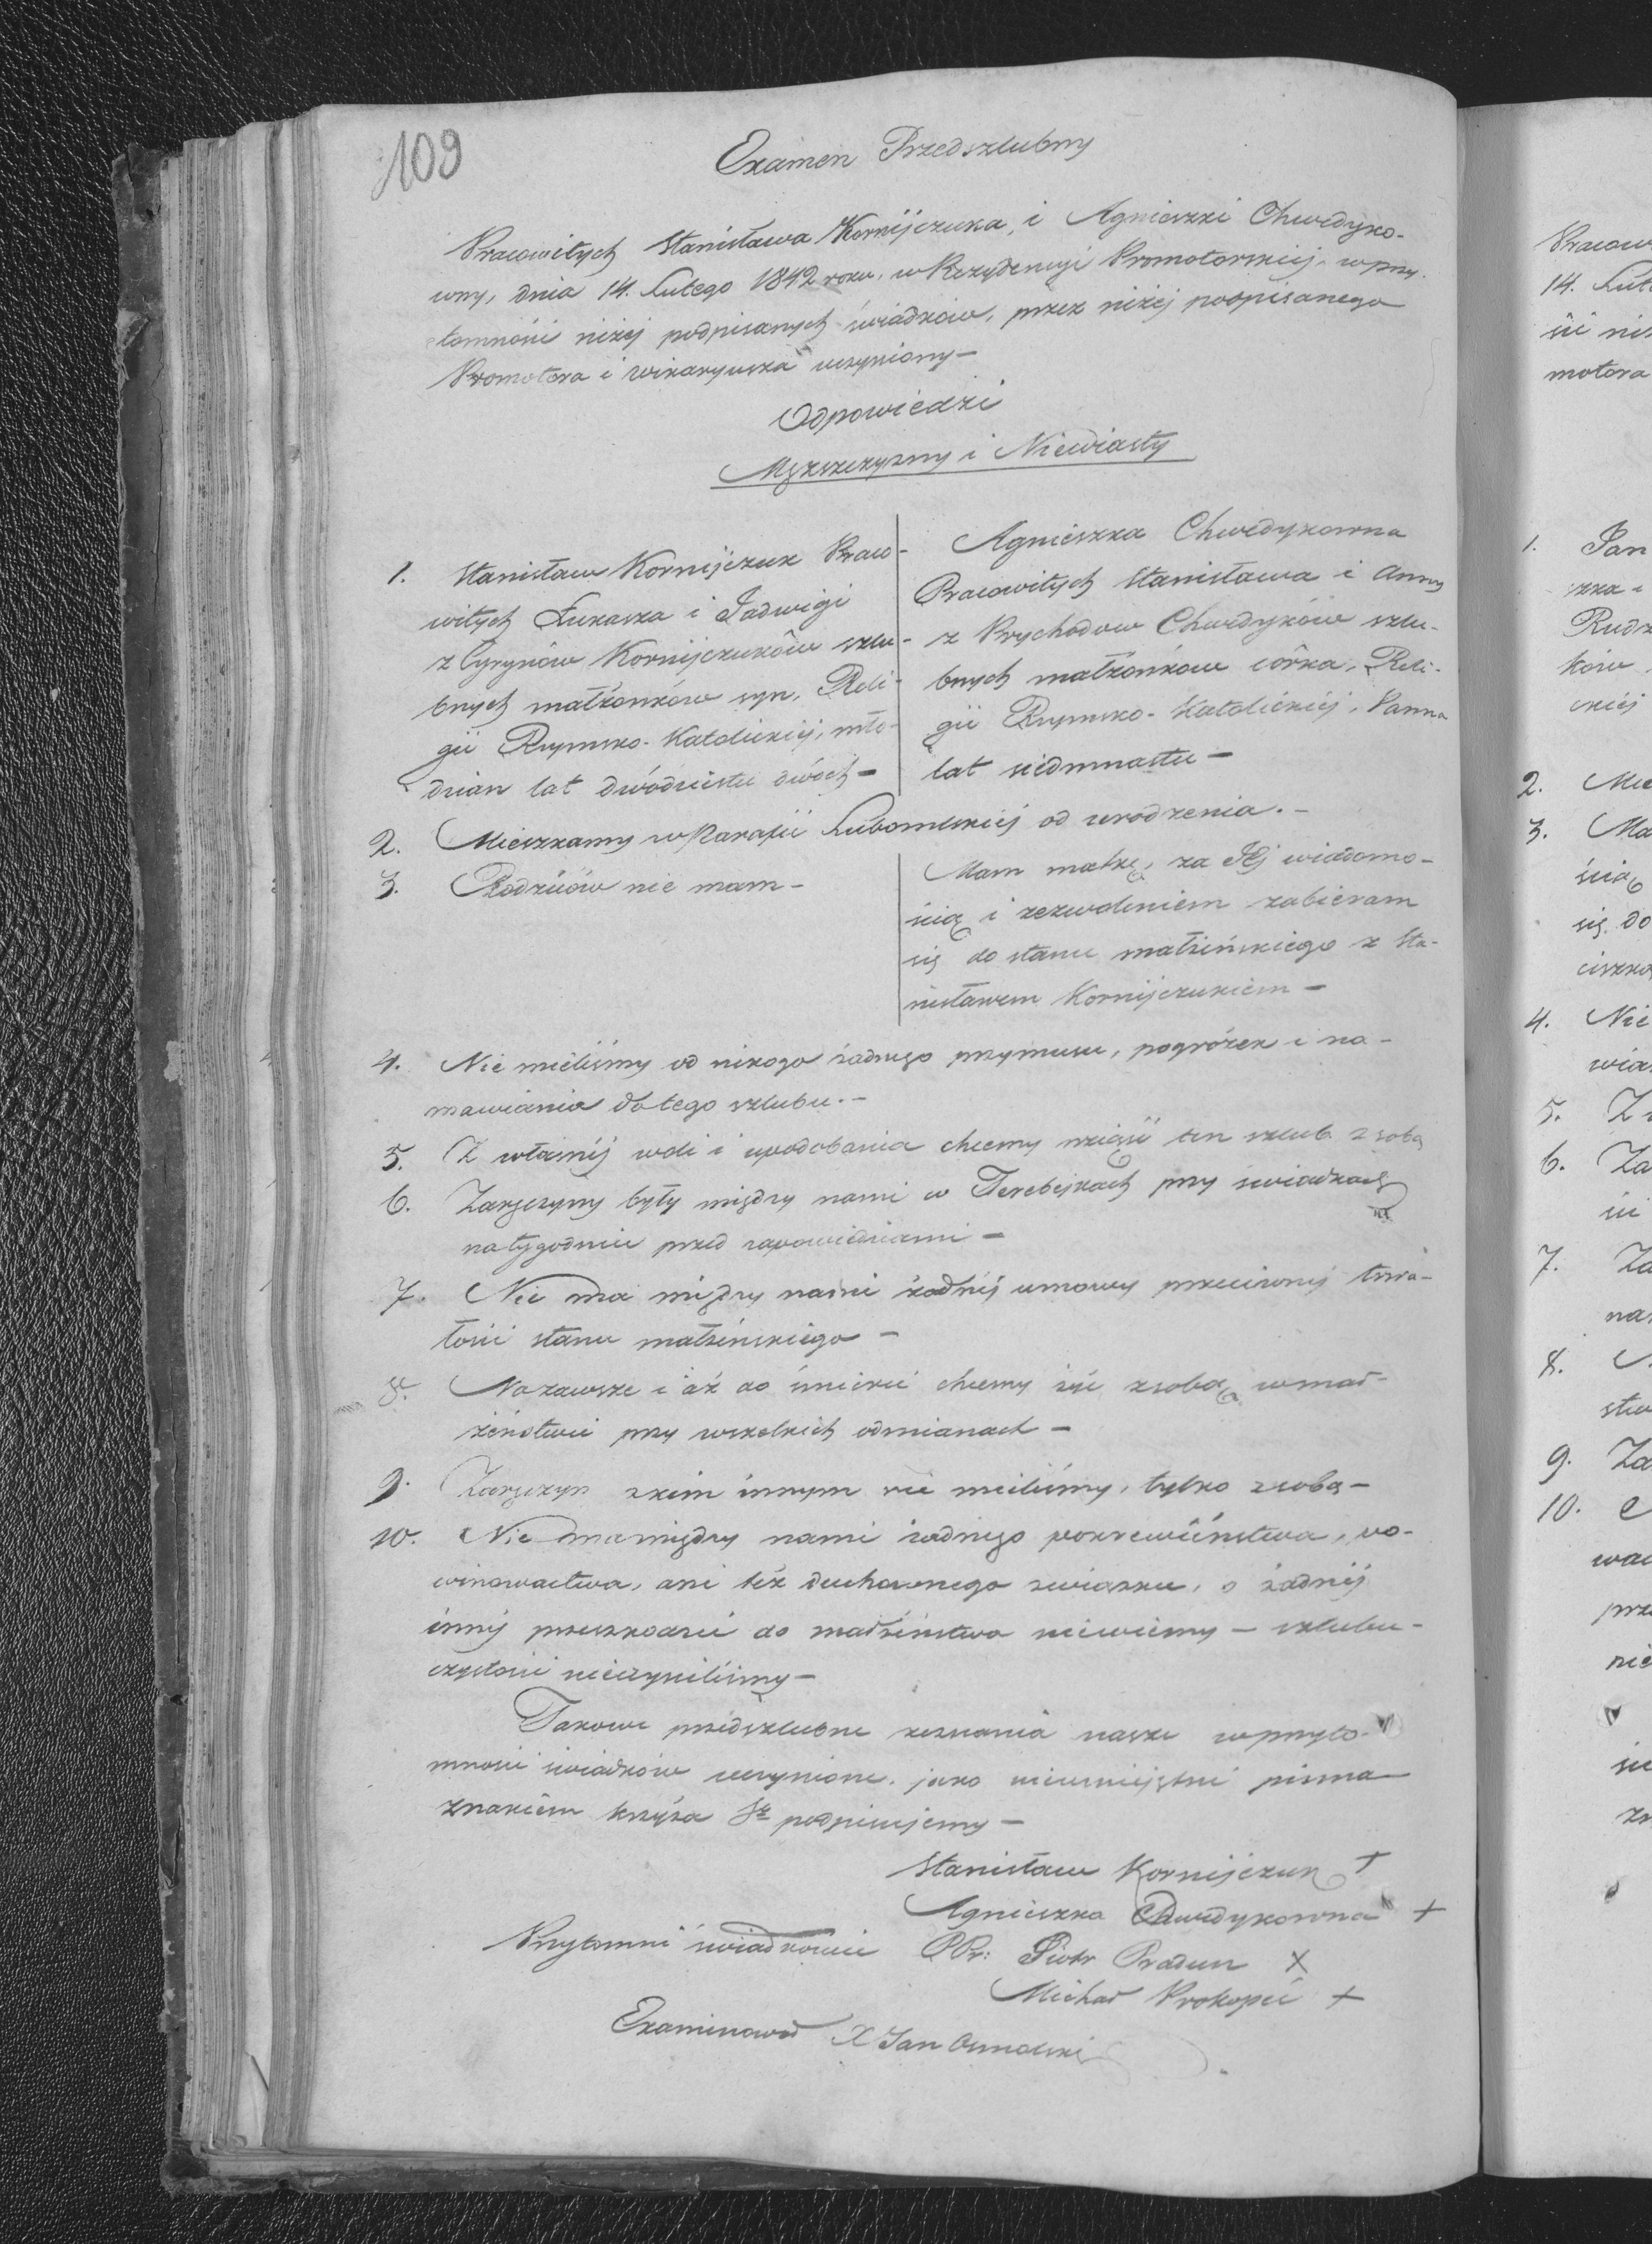 109
Examen Przedszlubny
Pracowitych Stanisława Kornijczuka, i Agnieszki Chwedyko-
wny, dnia 14. Lutego 1842 roku, w Rezydencyi Promotorskiej, w przy-
tomności niżej podpisanych świadków, przez niżej podpisanego
Promotora i wikaryusza uczyniony —
Odpowiedzi
Mężczyzny i Niewiasty
1. Stanisław Kornijczuk Praco-
witych Łukasza i Jadwigi
z Cyrynów Kornijczuków szlu-
bnych małżonków syn, Reli-
gii Rzymsko-Katolickiej, mło-
dzian lat dwódziestu dwóch —
Agnieszka Chwedykowna
Pracowitych Stanisława i Anny
z Prychodow Chwedyków szlu-
bnych małżonkow córka, Reli-
gii Rzymsko-Katolickiej, Panna
lat siedmnastu —
2. Mieszkamy w Parafii Lubomlskiej od urodzenia. —
3. Rodziców nie mam —
Mam matkę, za Jej wiadomo-
ścią i zezwoleniem zabieram
się do stanu małżeńskiego z Sta-
nisławem Kornijczukiem —
4. Nie mieliśmy od nikogo żadnego przymusu, pogróżek i na-
mawiania do tego szlubu. —
5. Z własnéj woli i upodobania chcemy wziąść ten szlub z sobą
6. Zaręczyny były między nami w Terebejkach przy świadkach
na tygodniu przed zapowiedziami —
7. Nie ma między nami żadnéj umowy przeciwnéj trwa-
łości stanu małżeńskiego —
8. Nazawsze i aż do śmierci chcemy żyć z sobą w mał-
żeństwie przy wszelkich odmianach —
9. Zaręczyn z kim innym nie mieliśmy, tylko z sobą —
10. Nie ma między nami żadnego pokrewieństwa, po-
winowactwa, ani téż duchownego związku, o żadnéj
innéj przeszkodzie do małżeństwa niewiemy — szlubu
czystości nieczyniliśmy —
Takowe przedszlubne zeznania nasze w przyto-
mności świadków uczynione, jako nieumiejętni pisma
znakiem krzyża Sgo podpisujemy —
Stanisław Kornijczuk +
Agnieszka Chwedykowna +
Przytomni świadkowie PPr: Piotr Pradun X
Michał Prokopić +
Examinował X Jan Osmolski